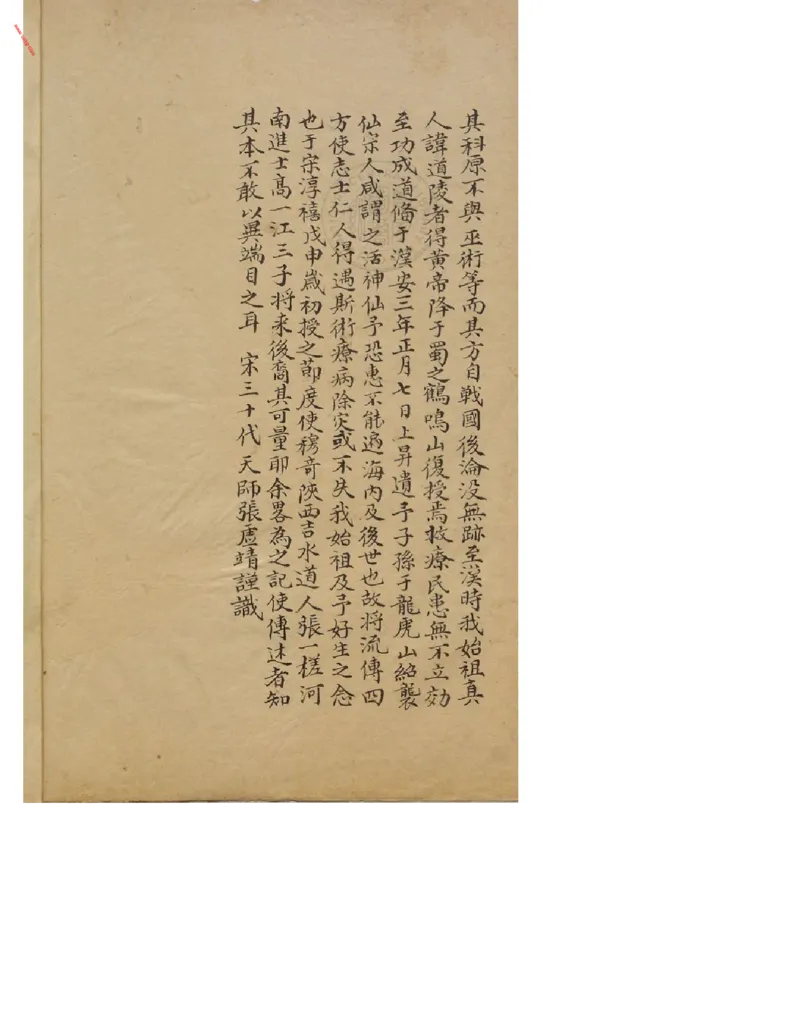 其科原不與巫術等而其方自戰國後淪没無跡至漢時我始祖真
人諱道陵者得黃帝降于蜀之鶴鳴山復授焉救療民患無不立効
至功成道俻于漢安三年正月七日上昇遺予子孫于龍虎山紹襲
仙宗人咸謂之活神仙予恐惠不能遍海内及後世也故将流傳四
方使志士仁人得遇斯術療病除灾或不失我始祖及予好生之念
也于宋淳禧戊申歳初授之節度使穆竒陝西吉水道人張一槎河
南進士高一江三子将来後裔其可量耶余畧為之記使傳述者知
其本不敢以異端目之耳　宋三十代天師張虛靖謹識